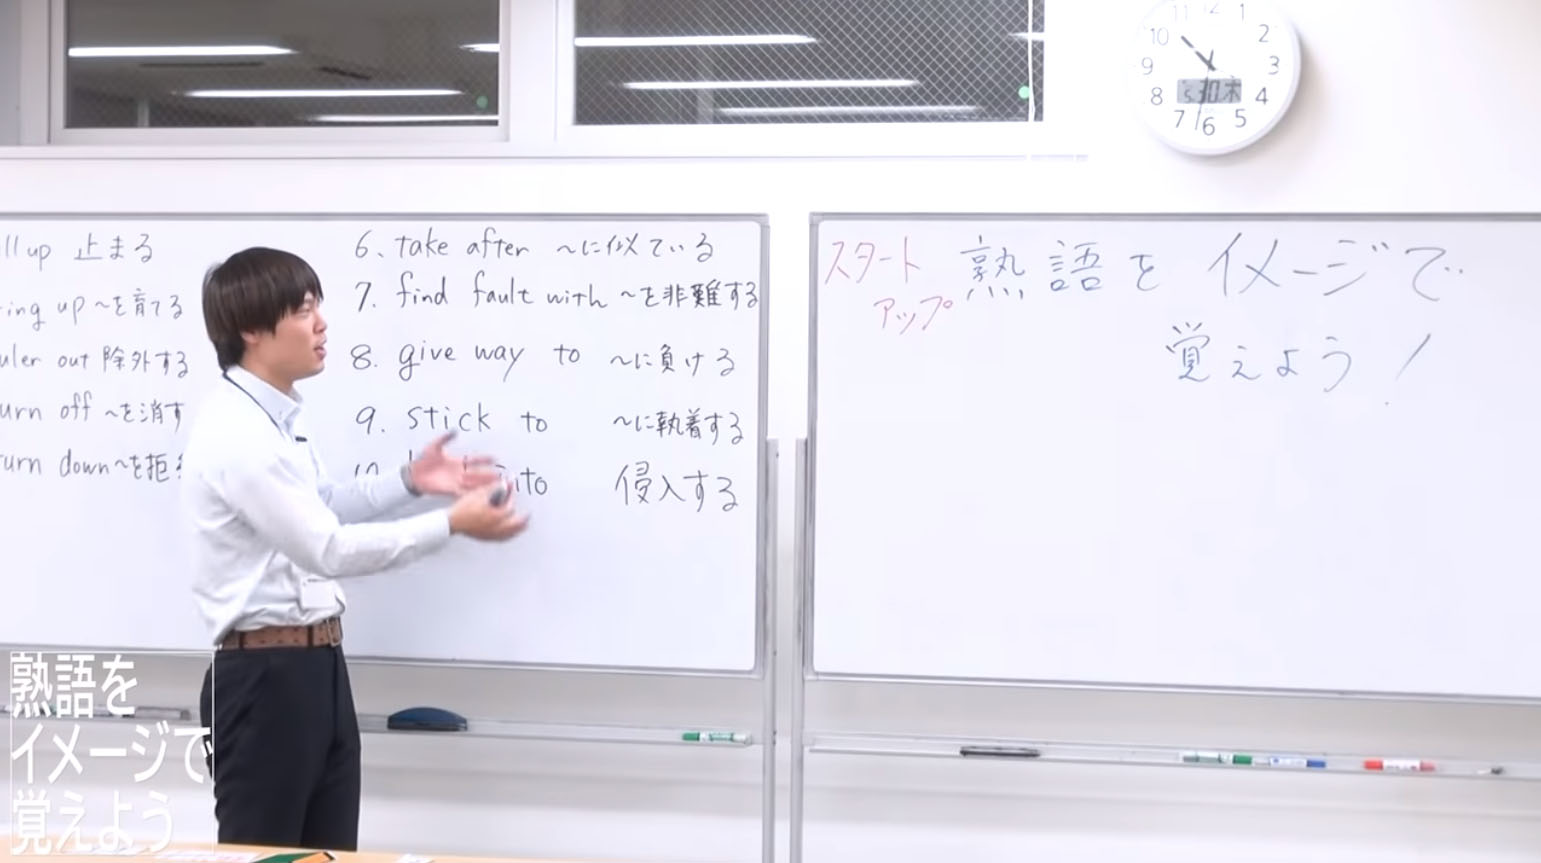 llup 止まる
ring up ~を育てる
uler out 除外する
urn off ~を消す
urn down~を拒
6. take after ~に似ている
7. find fault with ~を非難する
8. give way to ~に負ける
9. stick to ~に執着する
10. to 侵入する
スタートアップ
熟語をイメージで
覚えよう!
11 12 1
10 2
9 3
8 4
7 6 5
5.30木
熟語を
イメージで
覚えよう